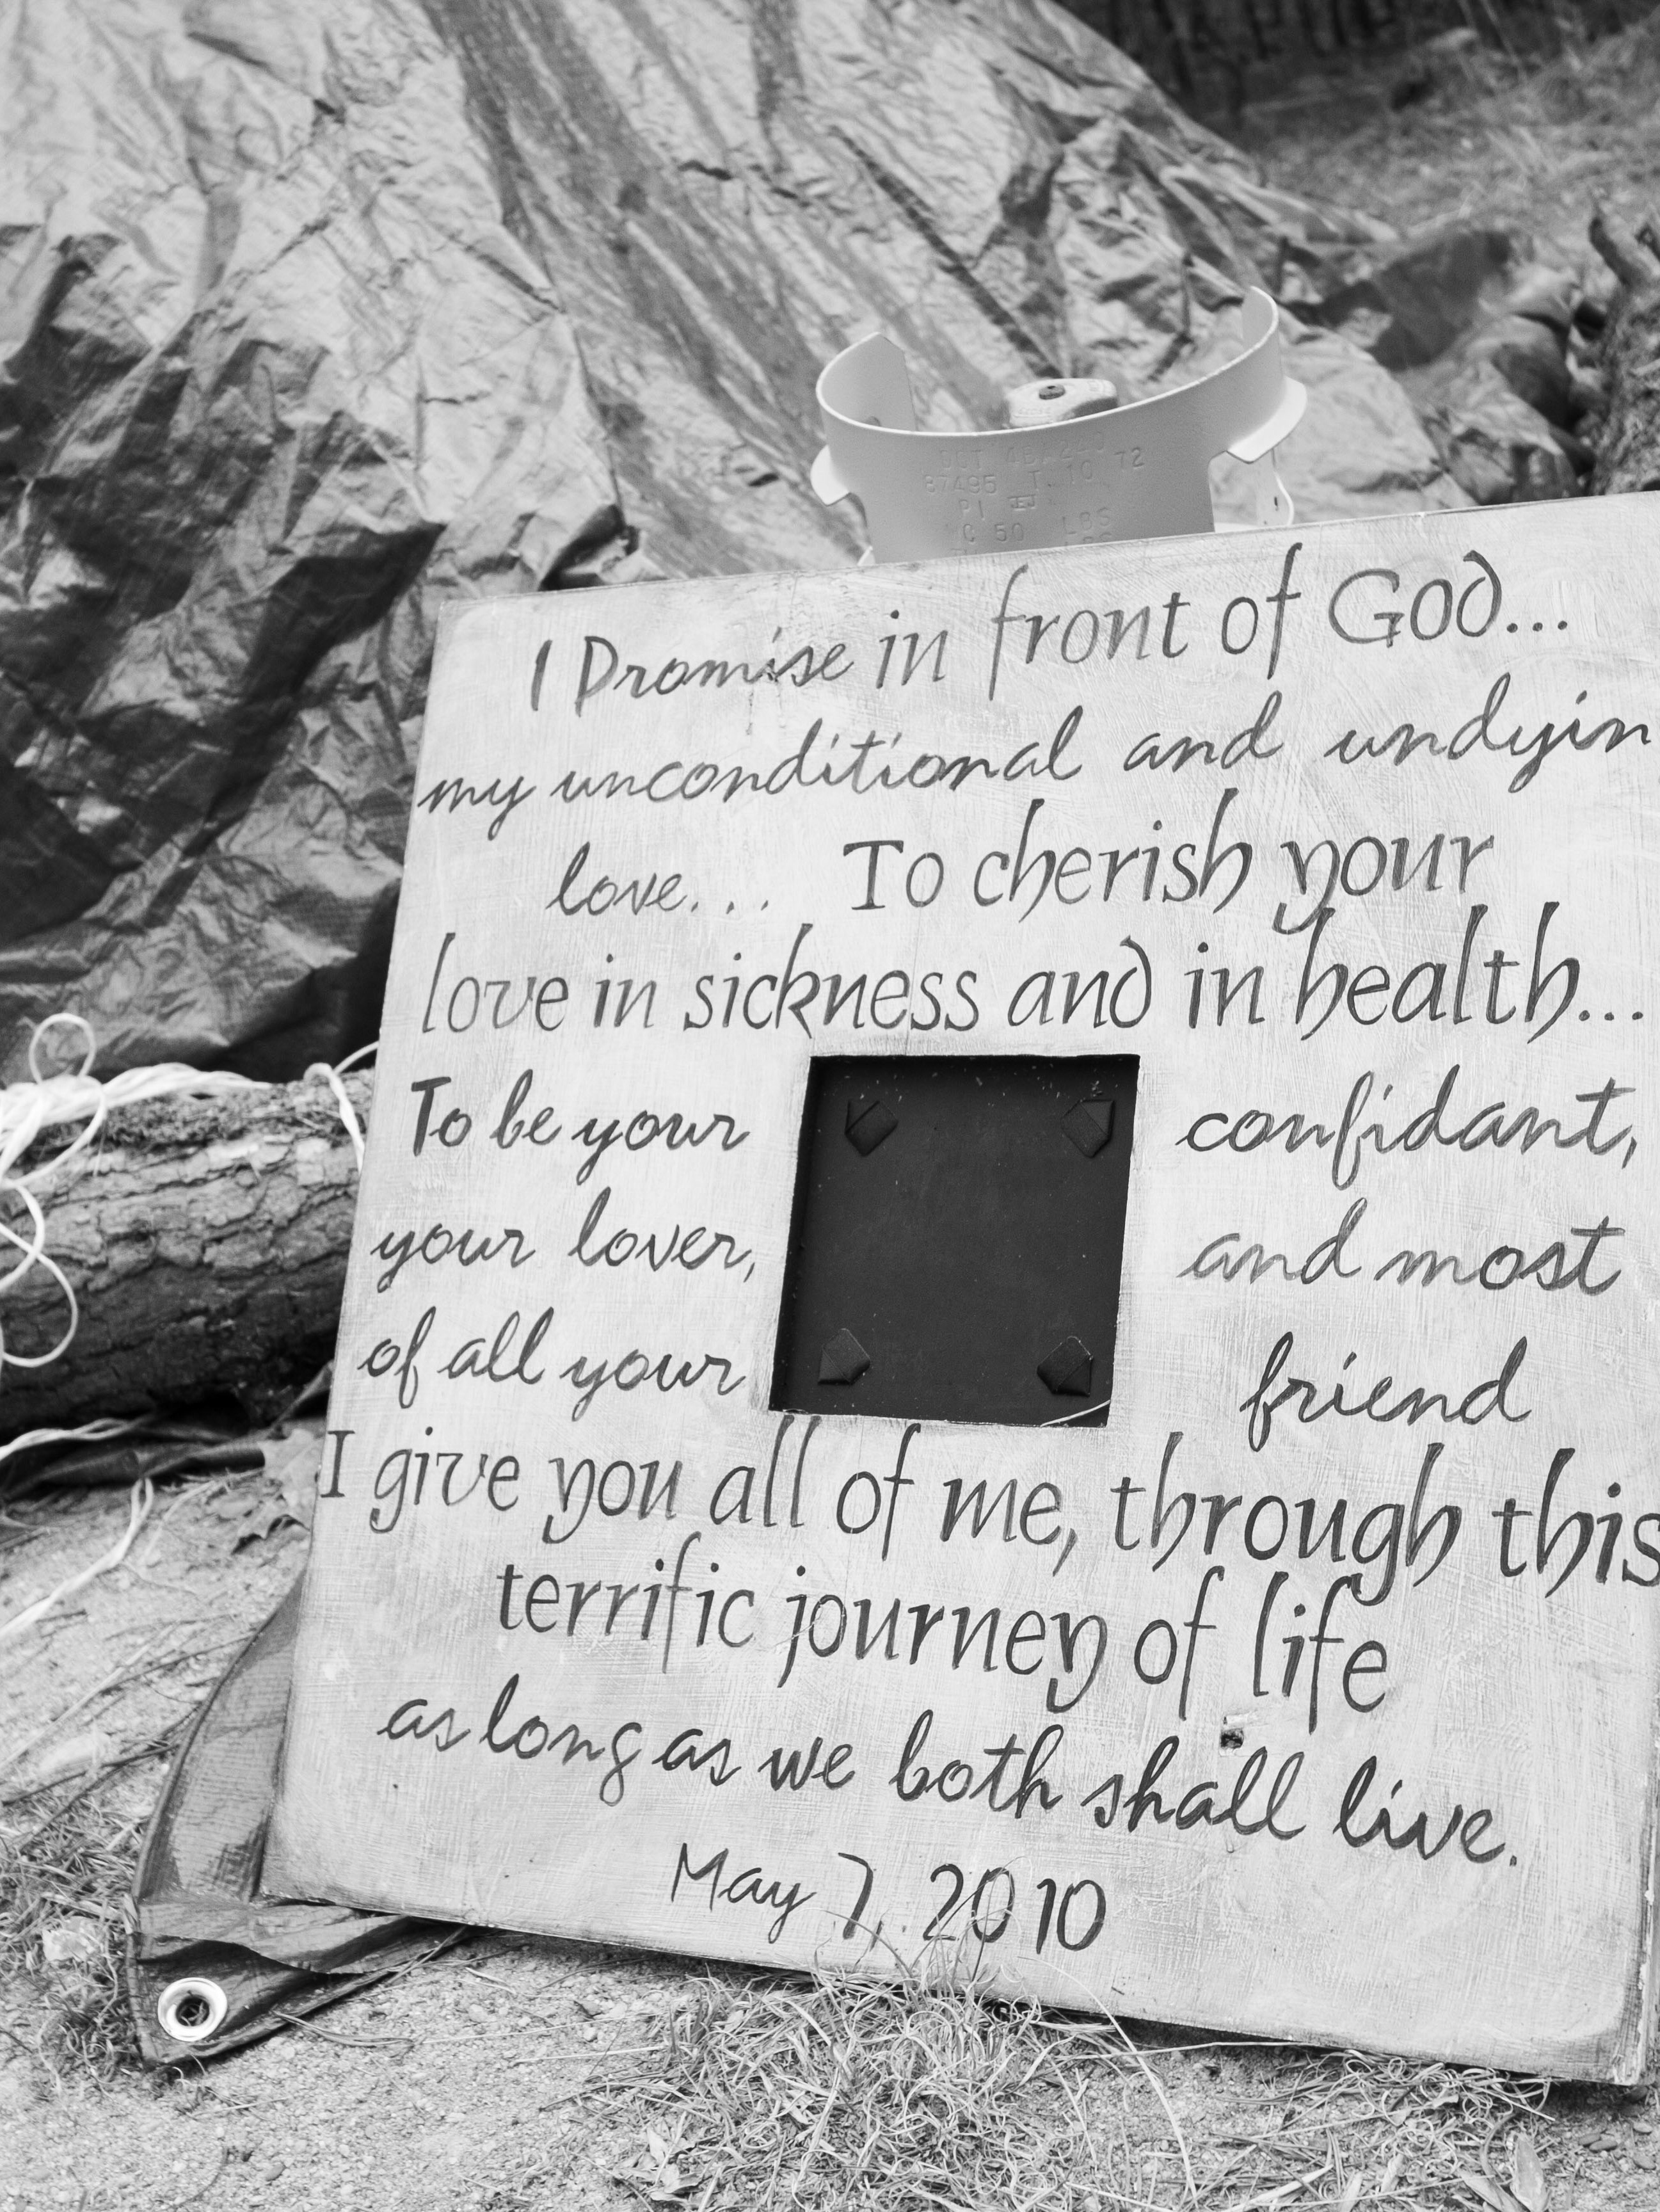 87495 T. 10 72
PI
C 50 LBS
I Promise in front of God...
my unconditional and undyin
love... To cherish your
love in sickness and in health...
To be your confidant,
your lover, and most
of all your friend
I give you all of me, through this
terrific journey of life
as long as we both shall live.
May 7, 2010